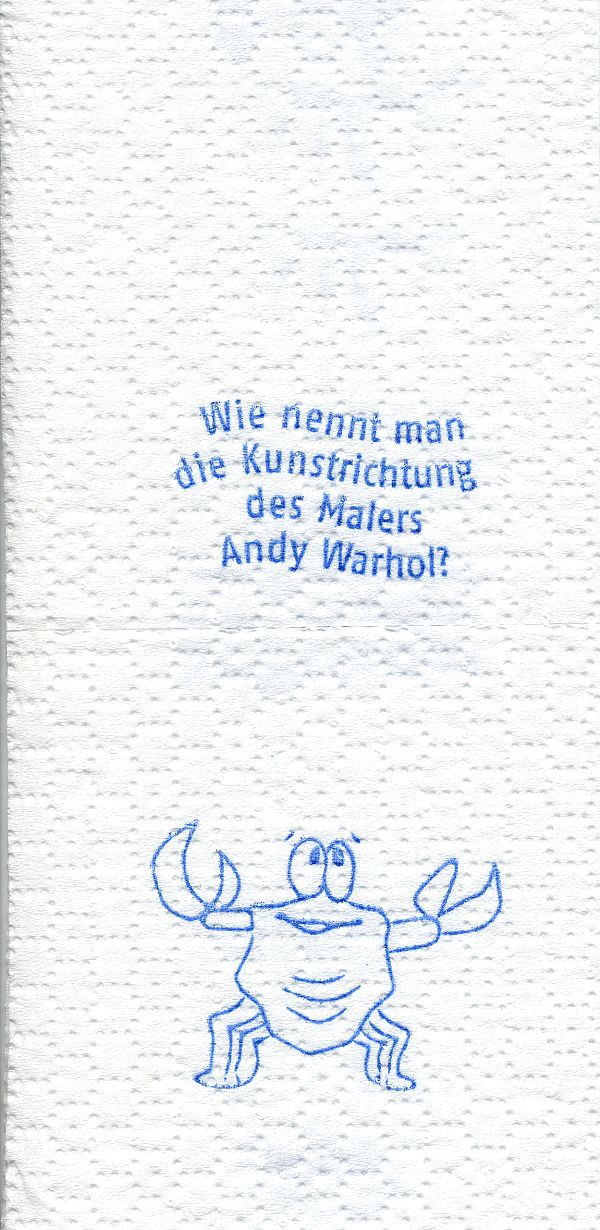 Wie nennt man
die Kunstrichtung
des Malers
Andy Warhol?